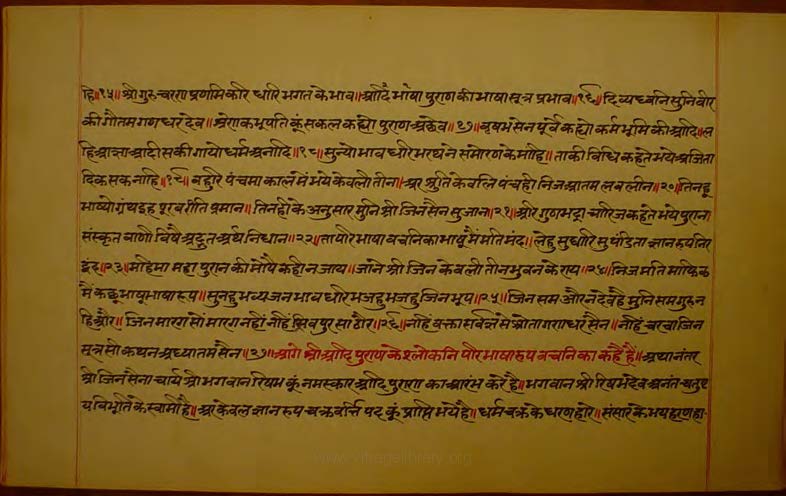 हि॥१५॥ श्री गुरु चरण प्रणमि करि धारि भगत के भाव॥ आदि भाषा पुराण की भाषा सूत्र प्रभाव॥१६॥ दिव्य ध्वनि सुनि वीर
की गौतम गणधर देव॥ श्रेणिक भूपति कूं सकल कह्यो पुराण अछेव॥१७॥ वृषभसेन पूर्व कह्यो कर्म भूमि की आदि॥ ल
हि आज्ञा आदीस की गायो धर्म अनादि॥१८॥ सुन्यो भाव धरि भरथ ने समोरण के माहि॥ ताकी विधि कहते भये अजिता
दिक सक नाहि॥१९॥ बहुरि पंचमा काल में भये केवली तीन॥ अर श्रुति केवलि पंच ही निज आतम लवलीन॥२०॥ तिनहू
भाष्यो ग्रंथ इह पूरब रीति प्रमान॥ तिनही के अनुसार मुनि श्री जिनसैन सुजान॥२१॥ श्रीगुणभद्राचारिज कहते भये पुरान॥
संस्कृत वाणी विषै अद्भुत अर्थ निधान॥२२॥ ता परि भाषा वचनिका भाषूं मैं मति मंद॥ लेहु सुधारि सुपंडिता ज्ञान रूप निर
द्वंद॥२३॥ महिमा महा पुरान की मोपै कही न जाय॥ जाने श्री जिन केवली तीन भुवन के राय॥२४॥ निज मति माफिक
मैं कछू भाषूं भाषा रूप॥ सुनहु भव्य जन भाव धरि भजहु भजहु जिन भूप॥२५॥ जिन सम और न देव है मुनि सम गुरु न
हि और॥ जिन मारग सों मारग नहीं नहिं सिवपुर सा ठौर॥२६॥ नहिं वक्ता सर्वज्ञ से श्रोता गणधर सैन॥ नहिं चरचा जिन
सूत्र सी कथन अध्यातम सैन॥२७॥ आगे श्री आदि पुराण के श्लोकनि परि भाषा रूप वचनिका कहै हैं॥ अथानंतर
श्री जिनसेनाचार्य श्री भगवान रिषभ कूं नमस्कार आदि पुराण का आरंभ करै है॥ भगवान श्री रिषभदेव अनंत चतुष्ट
य विभूति के स्वामी है॥ अर केवल ज्ञान रूप चक्रवर्त्ति पद कूं प्राप्ति भये है॥ धर्म चक्र के धरणहारे॥ संसार के भय हरणहा-